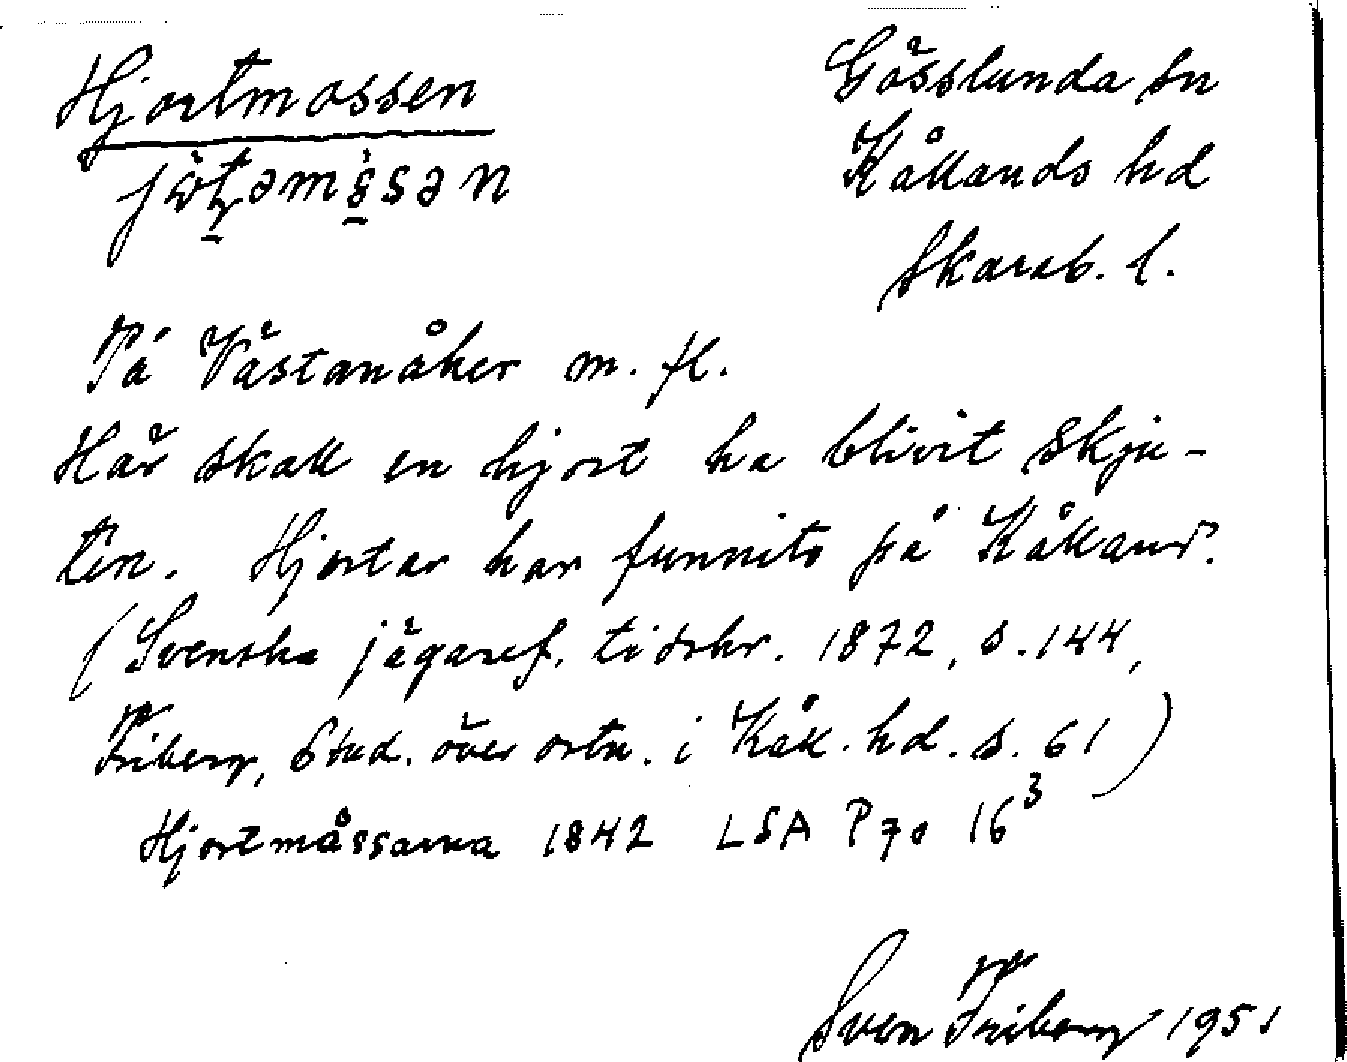 Hjortmossen
Gösslunda sn
Kållands hd
Skarab. l.
På Västanåker m. fl.
Här skall en hjort ha blivit skju-
ten. Hjortar har funnits på Kålland.
(Svenska jägaref. tidskr. 1872, s. 144,
Friberg, Stud. över ortn. i Kåll. hd. s. 61)
Hjortmåssarna 1842 LSA P70 16³
Sven Friberg 1951